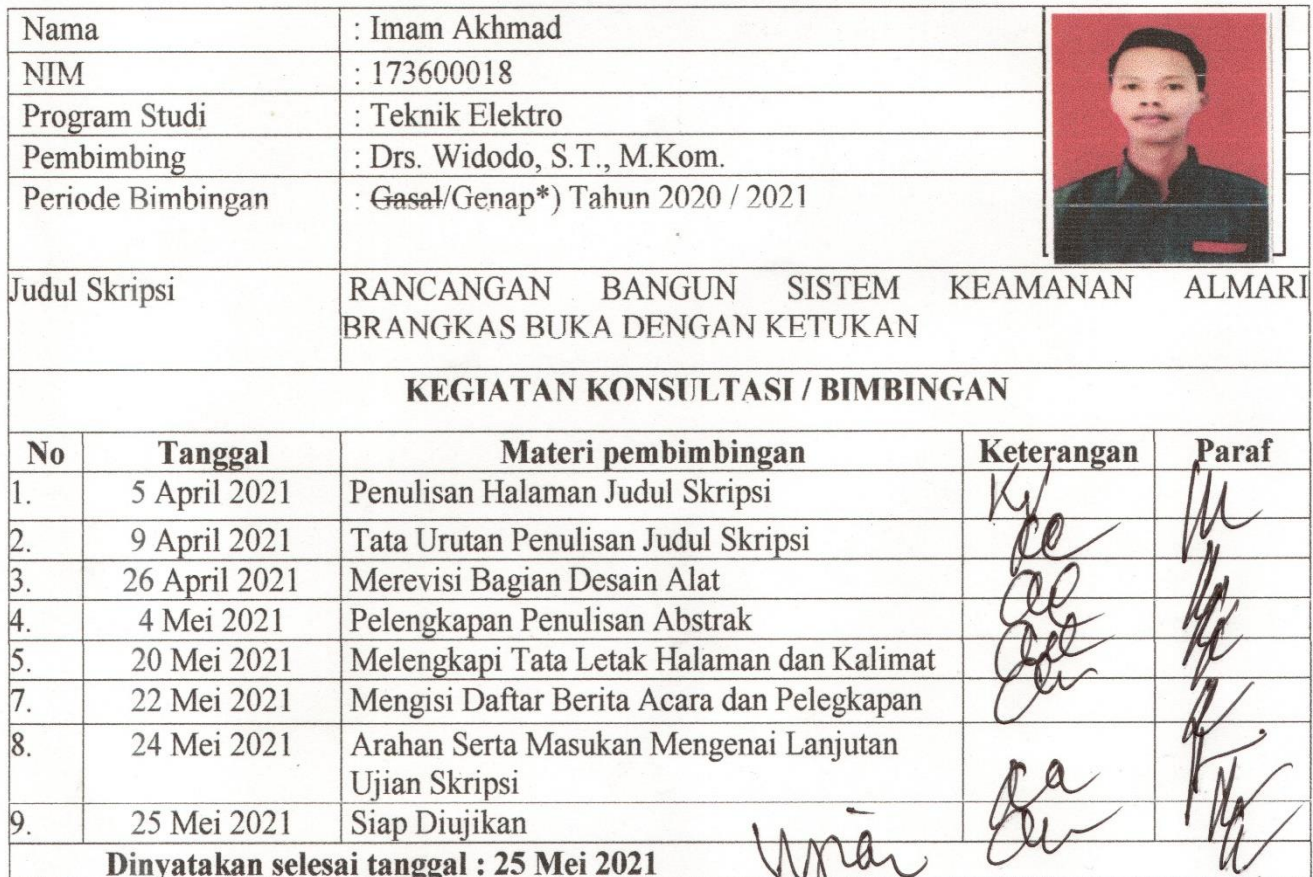 Nama : Imam Akhmad
NIM : 173600018
Program Studi : Teknik Elektro
Pembimbing : Drs. Widodo, S.T., M.Kom.
Periode Bimbingan : Gasal/Genap*) Tahun 2020 / 2021
Judul Skripsi RANCANGAN BANGUN SISTEM KEAMANAN ALMARI
BRANGKAS BUKA DENGAN KETUKAN
KEGIATAN KONSULTASI / BIMBINGAN
No Tanggal Materi pembimbingan Keterangan Paraf
1. 5 April 2021 Penulisan Halaman Judul Skripsi
2. 9 April 2021 Tata Urutan Penulisan Judul Skripsi
3. 26 April 2021 Merevisi Bagian Desain Alat
4. 4 Mei 2021 Pelengkapan Penulisan Abstrak
5. 20 Mei 2021 Melengkapi Tata Letak Halaman dan Kalimat
7. 22 Mei 2021 Mengisi Daftar Berita Acara dan Pelegkapan
8. 24 Mei 2021 Arahan Serta Masukan Mengenai Lanjutan
Ujian Skripsi
9. 25 Mei 2021 Siap Diujikan
Dinyatakan selesai tanggal : 25 Mei 2021